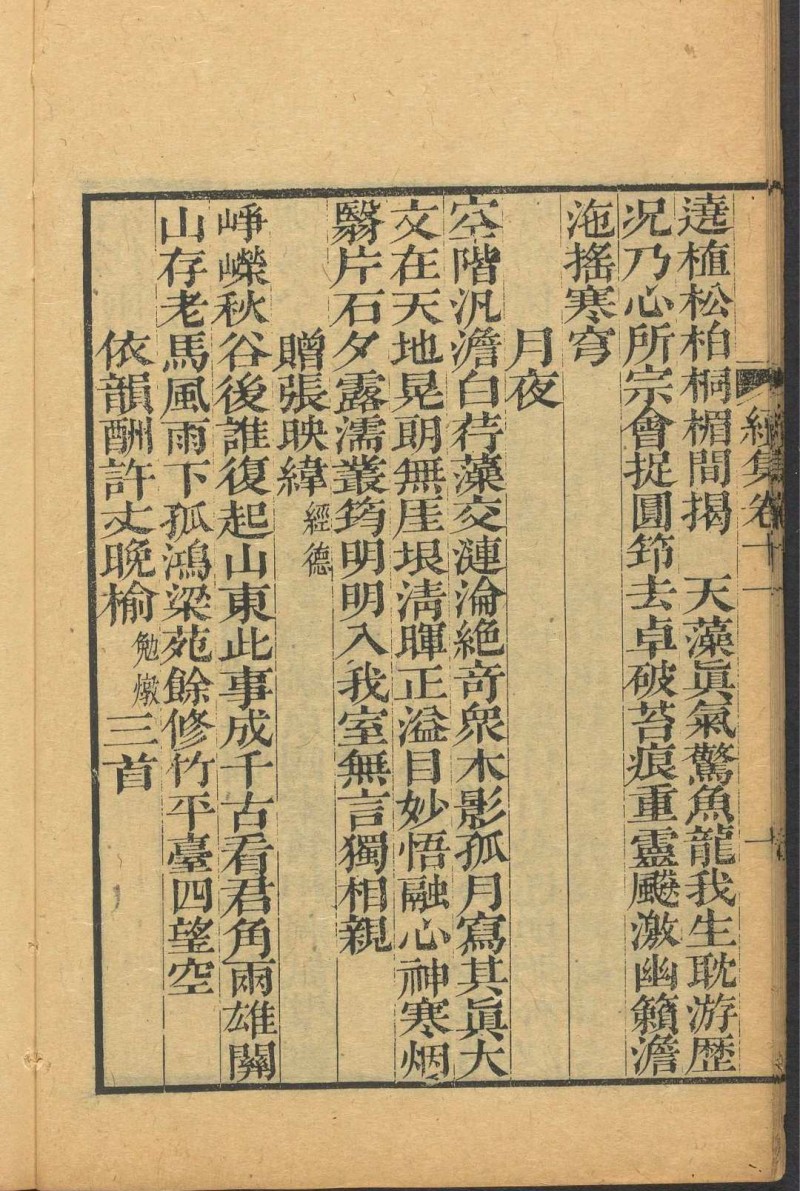 集卷十一
一
遶植松柏桐楣間揭　天藻眞氣驚魚龍我生耽游歴
况乃心所宗會捉圓筇去卓破苔痕重靈颷激幽籟澹
沲搖寒穹
月夜
空階汎澹白荇藻交漣淪絶奇衆木影孤月寫其眞大
文在天地晃朗無厓垠淸暉正溢目妙悟融心神寒烟
翳片石夕露濡叢筠明明入我室無言獨相親
贈張映緯經德
崢嶸秋谷後誰復起山東此事成千古看君角兩雄關
山存老馬風雨下孤鴻梁苑餘修竹平臺四望空
依韻酬許丈晩榆勉燉三首